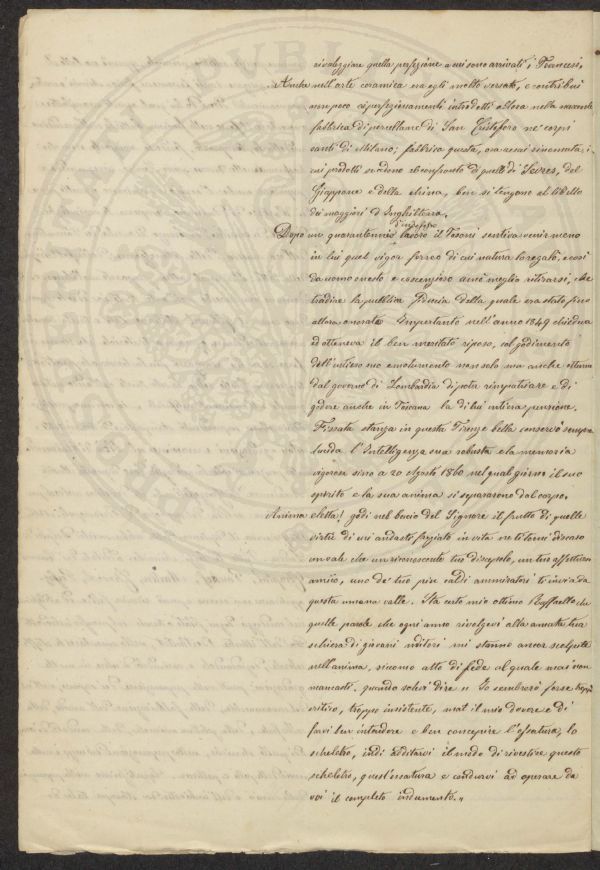 rivaleggiare quella perfezione a cui sono arrivati i Francesi.
Anche nell'arte ceramica era egli molto versato, e contribuì
non poco ai perfezionamenti introdotti allora nella nascente
fabbrica di porcellane di San Cristoforo ne' corpi
santi di Milano; fabbrica questa, ora assai rinomata, i
cui prodotti se cedono al confronto di quelli di Sevres, del
Giappone e della China, ben si tengono al livello
dei maggiori d'Inghilterra.
Dopo un quarantennio d'indefesso lavoro il Tosoni sentiva venir meno
in lui quel vigor ferreo di cui natura lo regalò, e così
da uomo onesto e coscenzioso amò meglio ritirarsi, che
tradire la pubblica fiducia della quale era stato fino
allora onorato. Impertanto nell'anno 1849 chiedeva
ed otteneva il ben meritato riposo, col godimento
dell'intiero suo emolumento non solo ma anche ottenne
dal governo di Lombardia di poter rimpatriare e di
godere anche in Toscana la di lui intiera pensione.
Fissata stanza in questa Firenze bella conservò sempre
lucida l'Intelligenza sua robusta e la memoria
vigorosa sino a 20 Agosto 1860 nel qual giorno il suo
spirito e la sua anima si separarono dal corpo.
Anima eletta! godi nel bacio del Signore il frutto di quelle
virtù di cui andasti fregiato in vita ne ti torni discaro
un vale che un riconoscente tuo discepolo, un tuo affettuoso
amico, uno de' tuoi più caldi ammiratori t'invia da
questa umana valle. Sta certo mio ottimo Raffaello che
quelle parole che ogni anno rivolgevi alla amata tua
schiera di giovani uditori mi stanno ancor scolpite
nell'anima, siccome atto di fede al quale mai non
mancasti. quando solevi dire " Io sembrerò forse troppo
critico, troppo insistente, ma il mio dovere è di
farvi ben intendere e ben concepire l'ossatura, lo
scheletro, indi additarvi il modo di rivestire questo
scheletro, quest'ossatura e condurvi ad operare da
voi il completo indumento. "